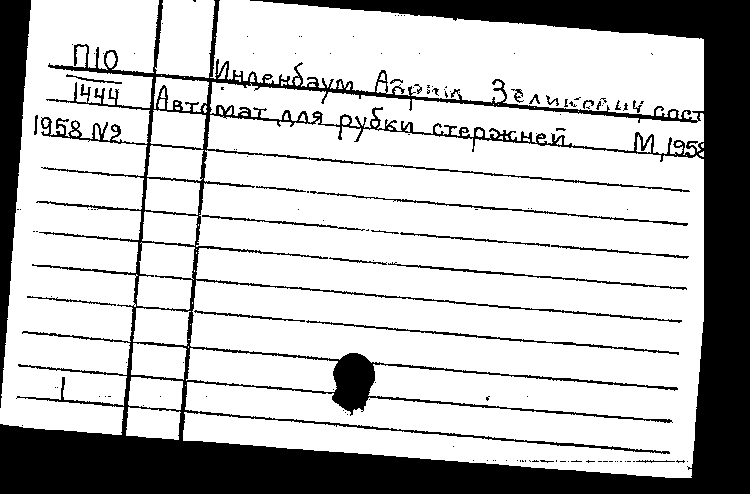 П10
Инденбаум, Абрам Зеликович, сост
1444
Автомат для рубки стержней. М, 1958
1958 N2
1